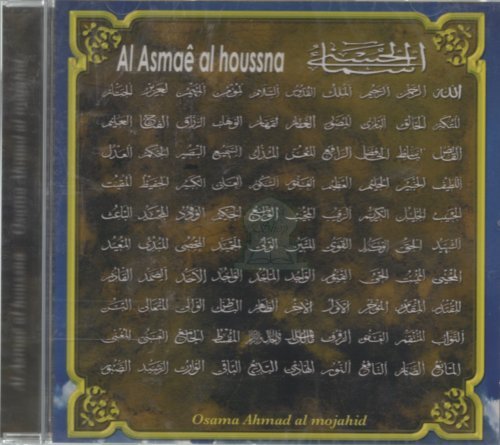 Al Asmaê al houssna
أسماء الله الحسنى
الله الرحمن الرحيم الملك القدوس السلام المؤمن المهيمن العزيز الجبار
المتكبر الخالق البارئ المصور الغفار القهار الوهاب الرزاق الفتاح العليم
القابض الباسط الخافض الرافع المعز المذل السميع البصير الحكم العدل
اللطيف الخبير الحليم العظيم الغفور الشكور العلي الكبير الحفيظ المقيت
الحسيب الجليل الكريم الرقيب المجيب الواسع الحكيم الودود المجيد الباعث
الشهيد الحق الوكيل القوي المتين الولي الحميد المحصي المبدئ المعيد
المحيي المميت الحي القيوم الواجد الماجد الواحد الأحد الصمد القادر
المقتدر المقدم المؤخر الأول الآخر الظاهر الباطن الوالي المتعالي البر
التواب المنتقم العفو الرؤوف المقسط الجامع الغني المغني
المانع الضار النافع النور الهادي البديع الباقي الوارث الرشيد الصبور
Osama Ahmad al mojahid
Al Asmaê al houssna Osama Ahmad al mojahid